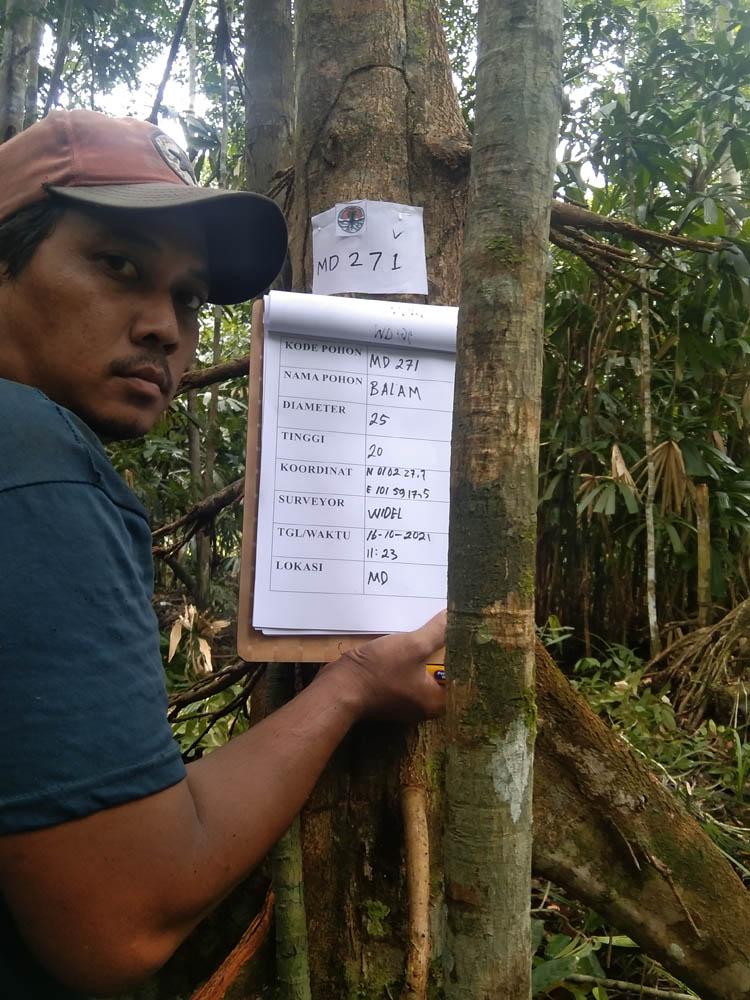 MD 271
KODE POHON MD 271
NAMA POHON BALAM
DIAMETER 25
TINGGI 20
KOORDINAT N 01 02 27.7
E 101 59 17.5
SURVEYOR WIDEL
TGL/WAKTU 16-10-2021
11:23
LOKASI MD